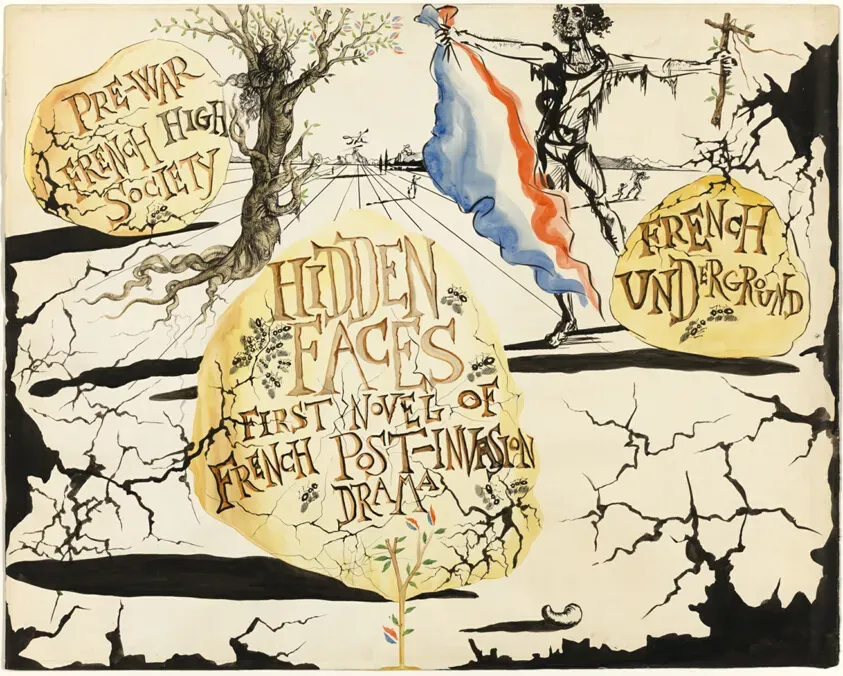 PRE-WAR
FRENCH HIGH
SOCIETY
HIDDEN
FACES
FIRST NOVEL OF
FRENCH POST-INVASION
DRAMA
FRENCH
UNDERGROUND